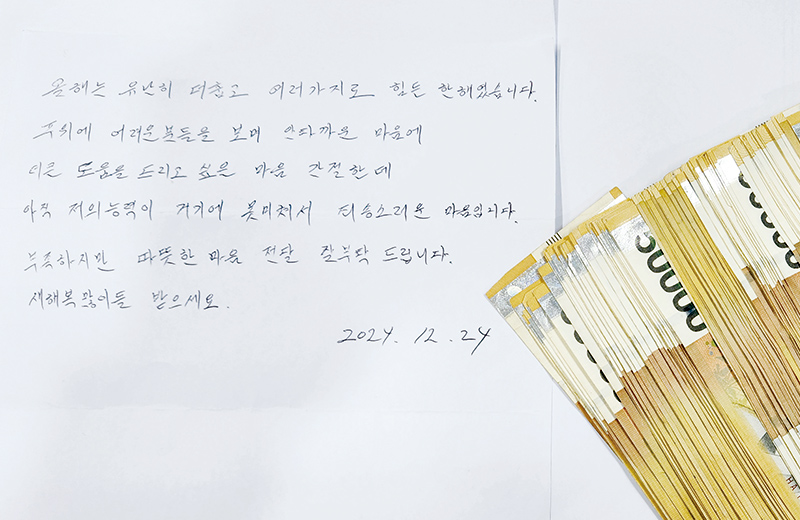 올해는 유난히 더웁고 여러가지로 힘든 한해였습니다.
주위에 어려운분들을 보며 안타까운 마음에
더큰 도움을 드리고 싶은 마음 간절한데
아직 저의능력이 거기에 못미쳐서 죄송스러운 마음입니다.
부족하지만 따뜻한 마음 전달 잘부탁 드립니다.
새해복많이들 받으세요.
2024. 12. 24
50000